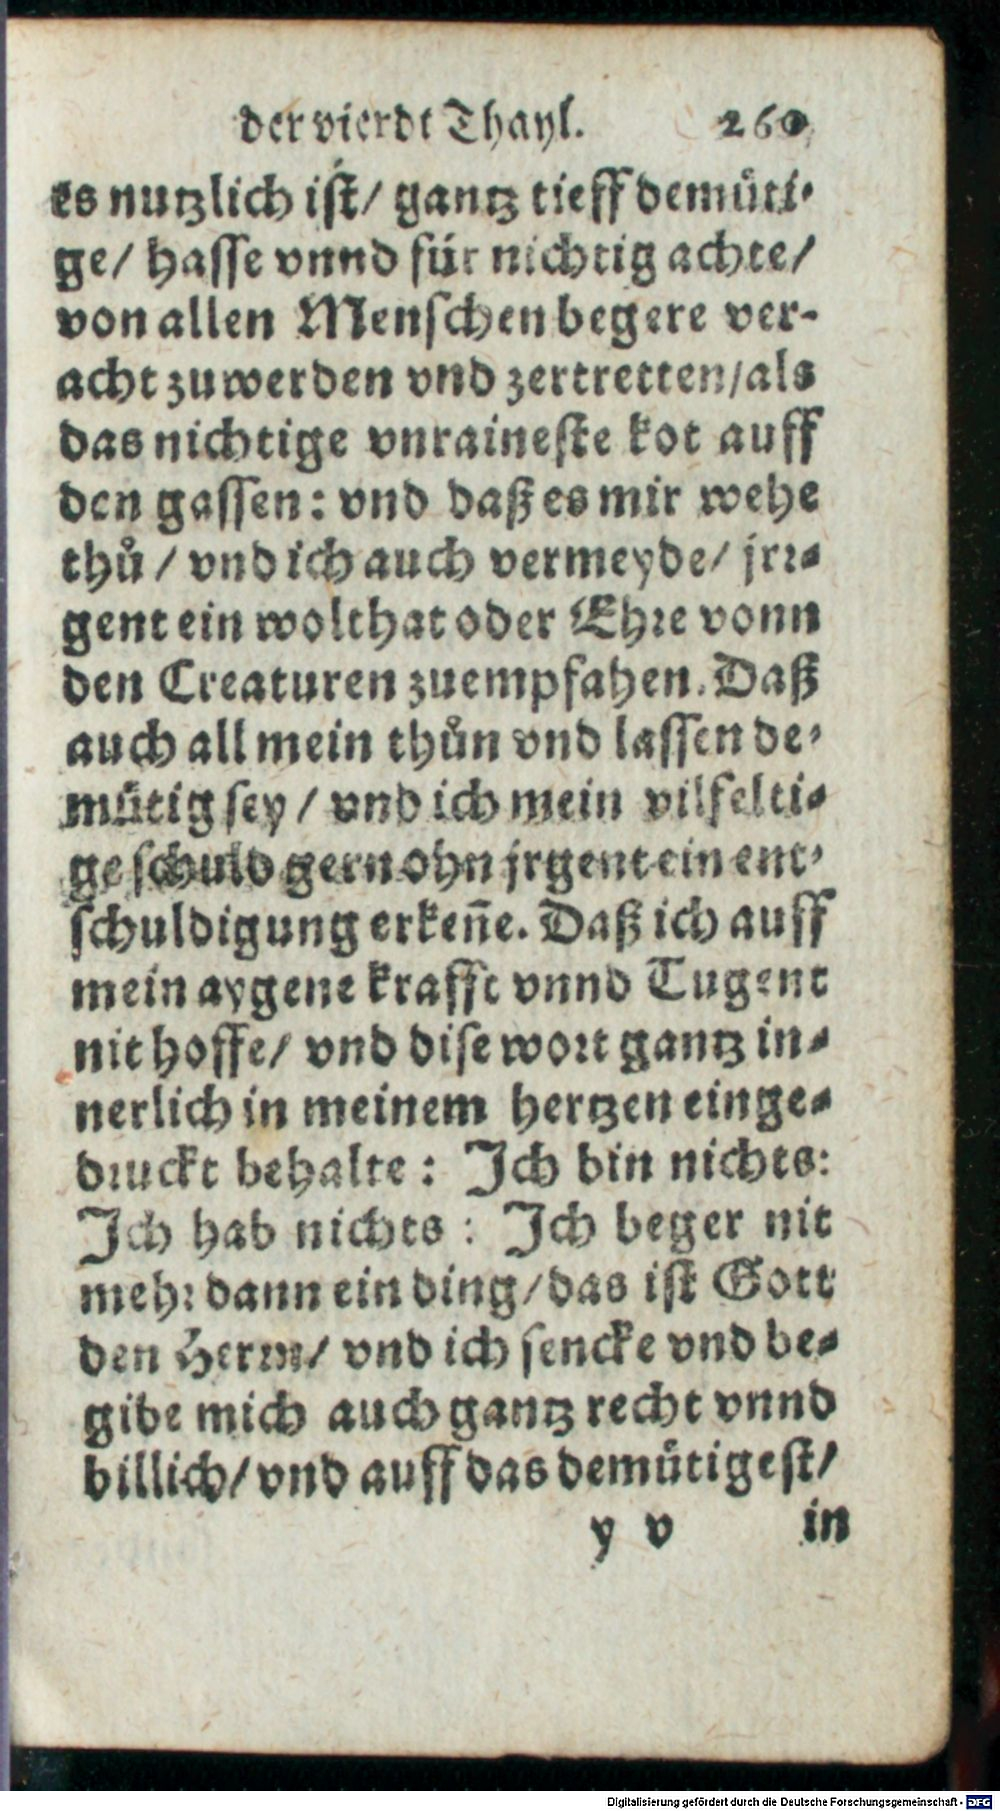 der vierdt Thayl. 260
es nutzlich ist/ gantz tieff demüti-
ge/ hasse vnnd für nichtig achte/
von allen Menschen begere ver-
acht zuwerden vnd zertretten/als
das nichtige vnraineste kot auff
den gassen: vnd daß es mir wehe
thů / vnd ich auch vermeyde/ jrr-
gent ein wolthat oder Ehre vonn
den Creaturen zuempfahen. Daß
auch all mein thůn vnd lassen de-
mütig sey / vnd ich mein vilfelti-
ge schuld gern ohn jrgent ein ent-
schuldigung erkeñe. Daß ich auff
mein aygene krafft vnnd Tugent
nit hoffe/ vnd dise wort gantz in-
nerlich in meinem hertzen einge-
druckt behalte: Ich bin nichts:
Ich hab nichts: Ich beger nit
mehr dann ein ding/das ist Gott
den Herrn/ vnd ich sencke vnd be-
gibe mich auch gantz recht vnnd
billich/ vnd auff das demütigest/
y v in
Digitalisierung gefördert durch die Deutsche Forschungsgemeinschaft - DFG